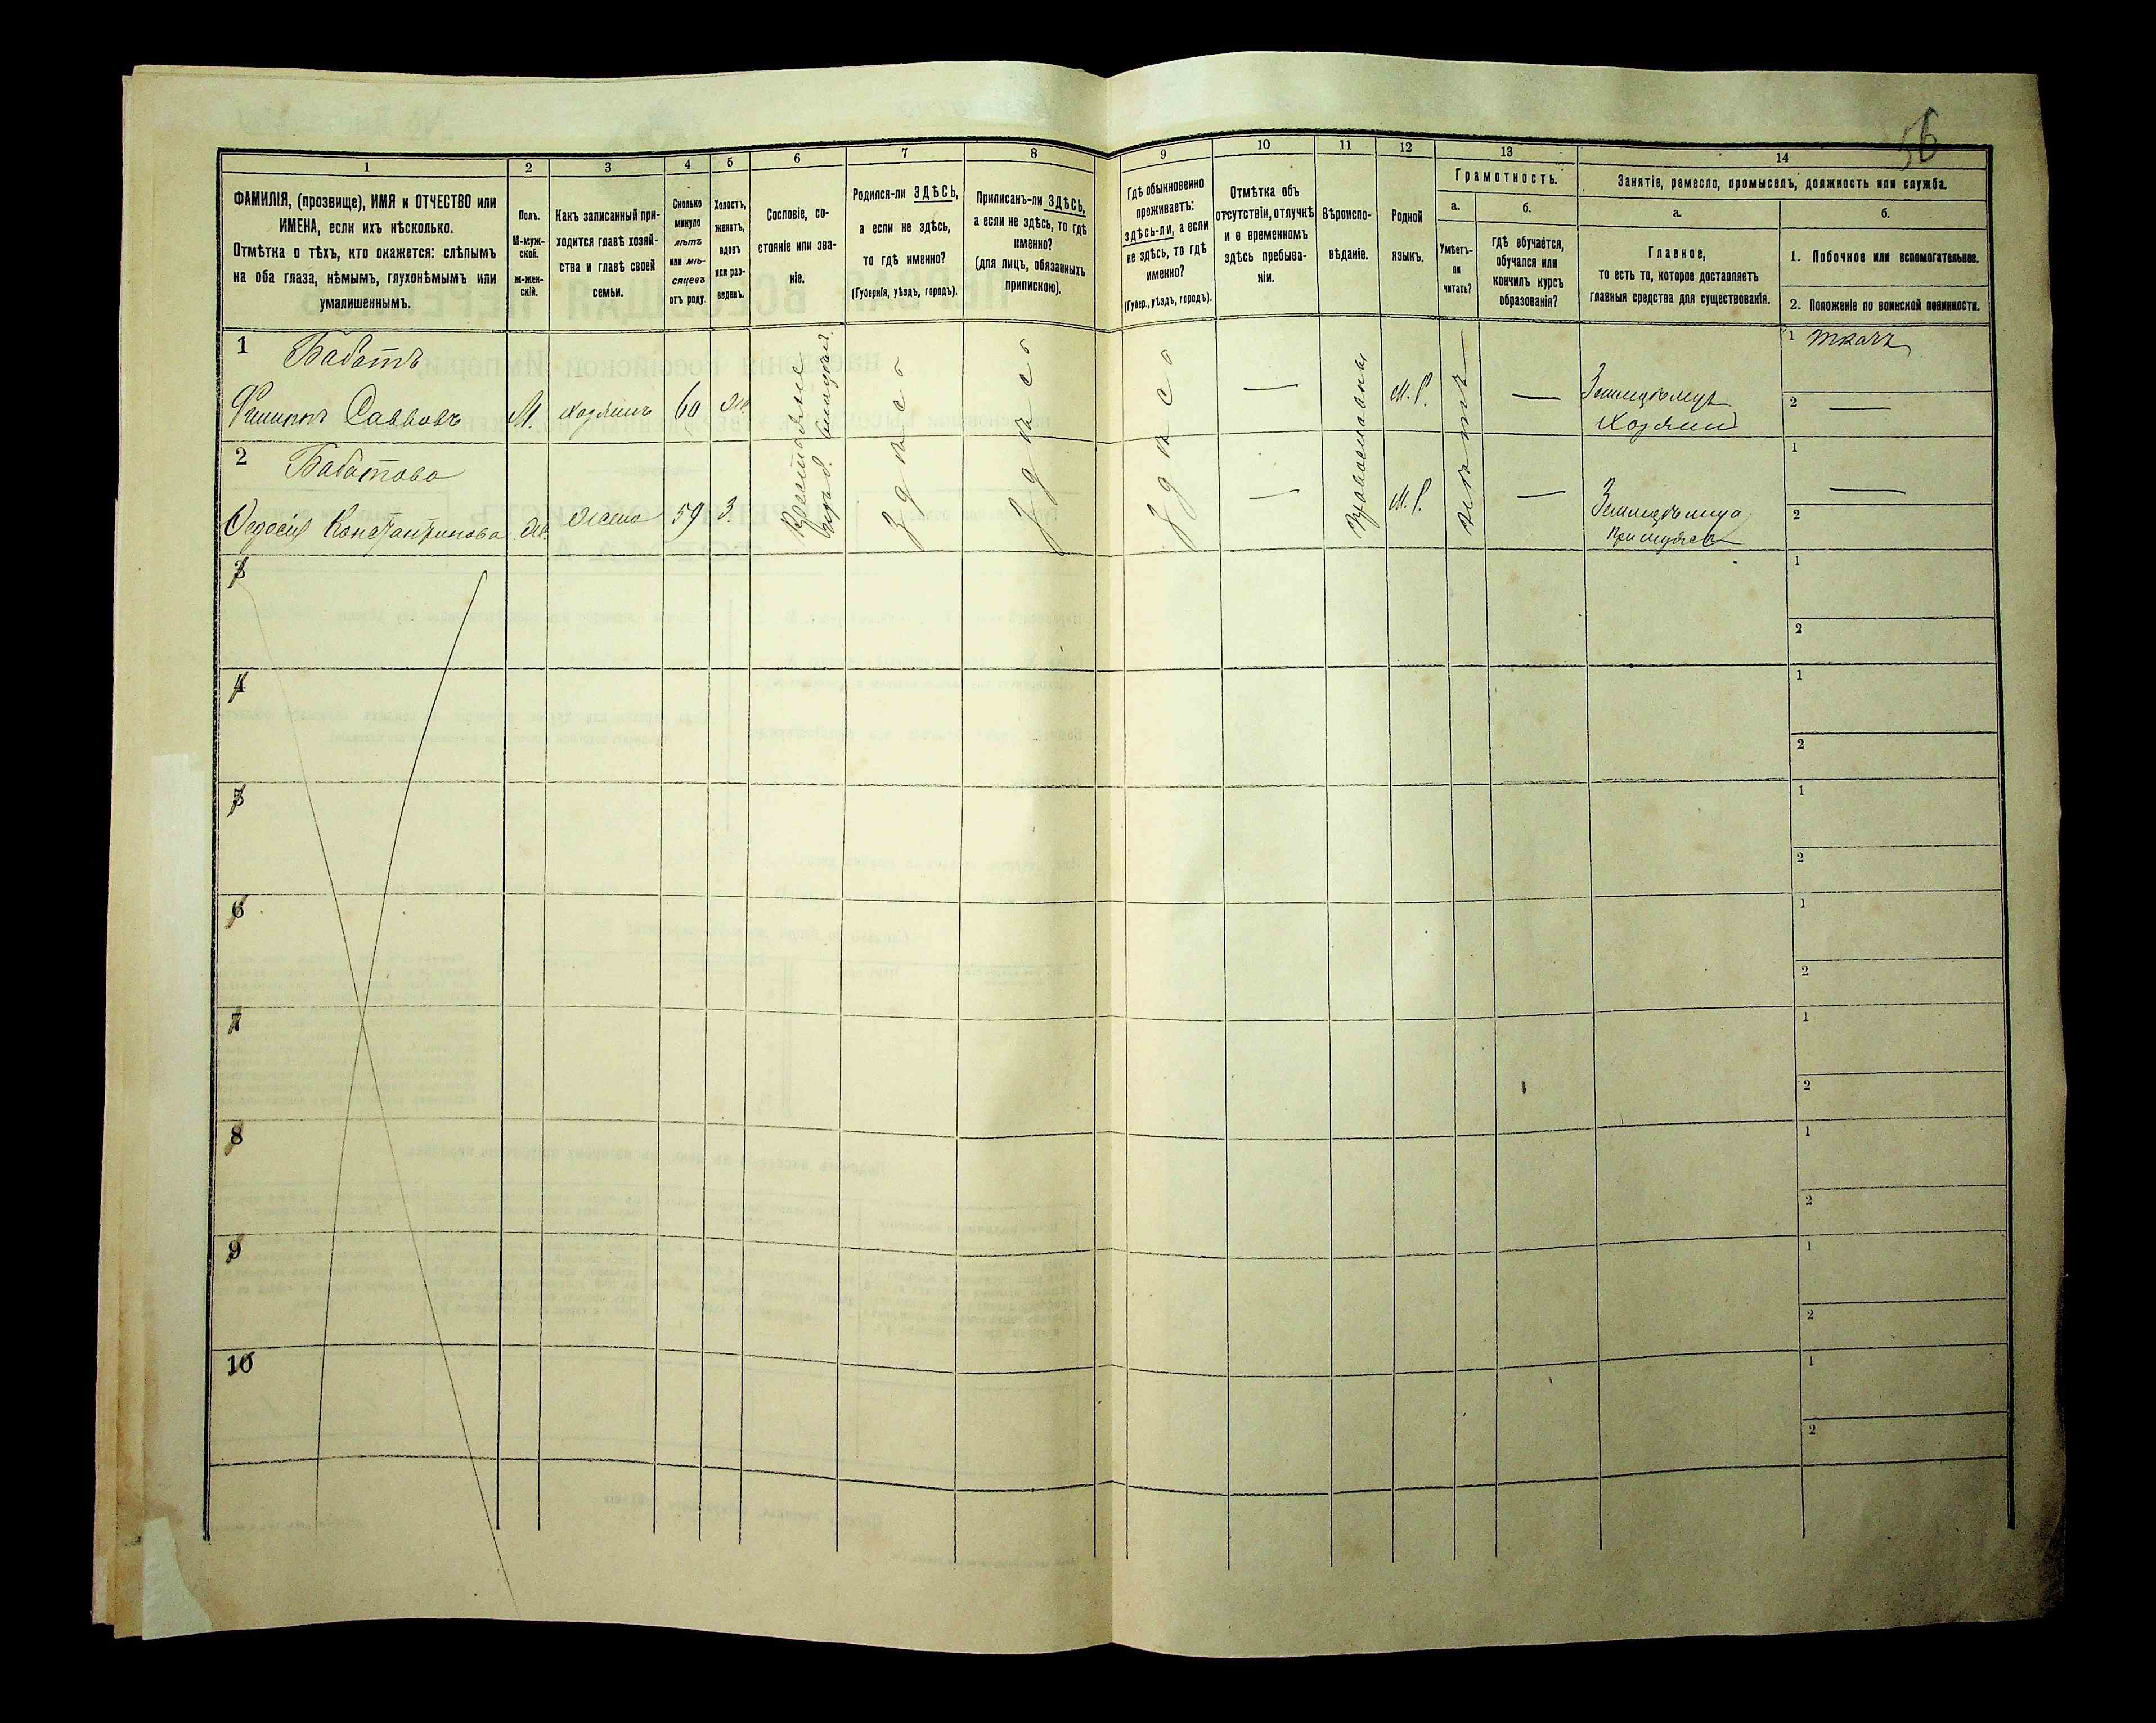 56
1
2
3
4
5
6
7
8
9
10
11
12
13
14
ФАМИЛІЯ, (прозвище), ИМЯ и ОТЧЕСТВО или
ИМЕНА, если ихъ нѣсколько.
Отмѣтка о тѣхъ, кто окажется: слѣпымъ
на оба глаза, нѣмымъ, глухонѣмымъ или
умалишеннымъ.
Полъ.
М-муж-
ской.
Ж-жен-
скій.
Какъ записанный при-
ходится главѣ хозяй-
ства и главѣ своей
семьи.
Сколько
минуло
лѣтъ
или мѣ-
сяцевъ
отъ роду.
Холостъ,
женатъ,
вдовъ
или раз-
веденъ.
Сословіе, со-
стояніе или зва-
ніе.
Родился-ли ЗДѢСЬ,
а если не здѣсь,
то гдѣ именно?
(Губернія, уѣздъ, городъ).
Приписанъ-ли ЗДѢСЬ,
а если не здѣсь, то гдѣ
именно?
(для лицъ, обязанныхъ
припискою).
Гдѣ обыкновенно
проживаетъ:
здѣсь-ли, а если
не здѣсь, то гдѣ
именно?
(Губер., уѣздъ, городъ).
Отмѣтка объ
отсутствіи, отлучкѣ
и о временномъ
здѣсь пребыва-
ніи.
Вѣроиспо-
вѣданіе.
Родной
языкъ.
Грамотность.
а.
Умѣетъ-
ли
читать?
б.
гдѣ обучается,
обучался или
кончилъ курсъ
образованія?
Занятіе, ремесло, промыселъ, должность или служба.
а.
Главное,
то есть то, которое доставляетъ
главныя средства для существованія.
б.
1. Побочное или вспомогательное.
2. Положеніе по воинской повинности.
1 Бабатъ
Филиппъ Саввовъ
М.
хозяинъ
60
Земледѣлецъ
Хозяинъ
1 ткачъ
2
2 Бабатова
Федосія Константинова
жена
59
З.
здѣсь
здѣсь
здѣсь
православная
М. Р.
М. Р.
нѣтъ
1
2
3
1
2
4
1
2
5
1
2
6
1
2
7
1
2
8
1
2
9
1
2
10
1
2